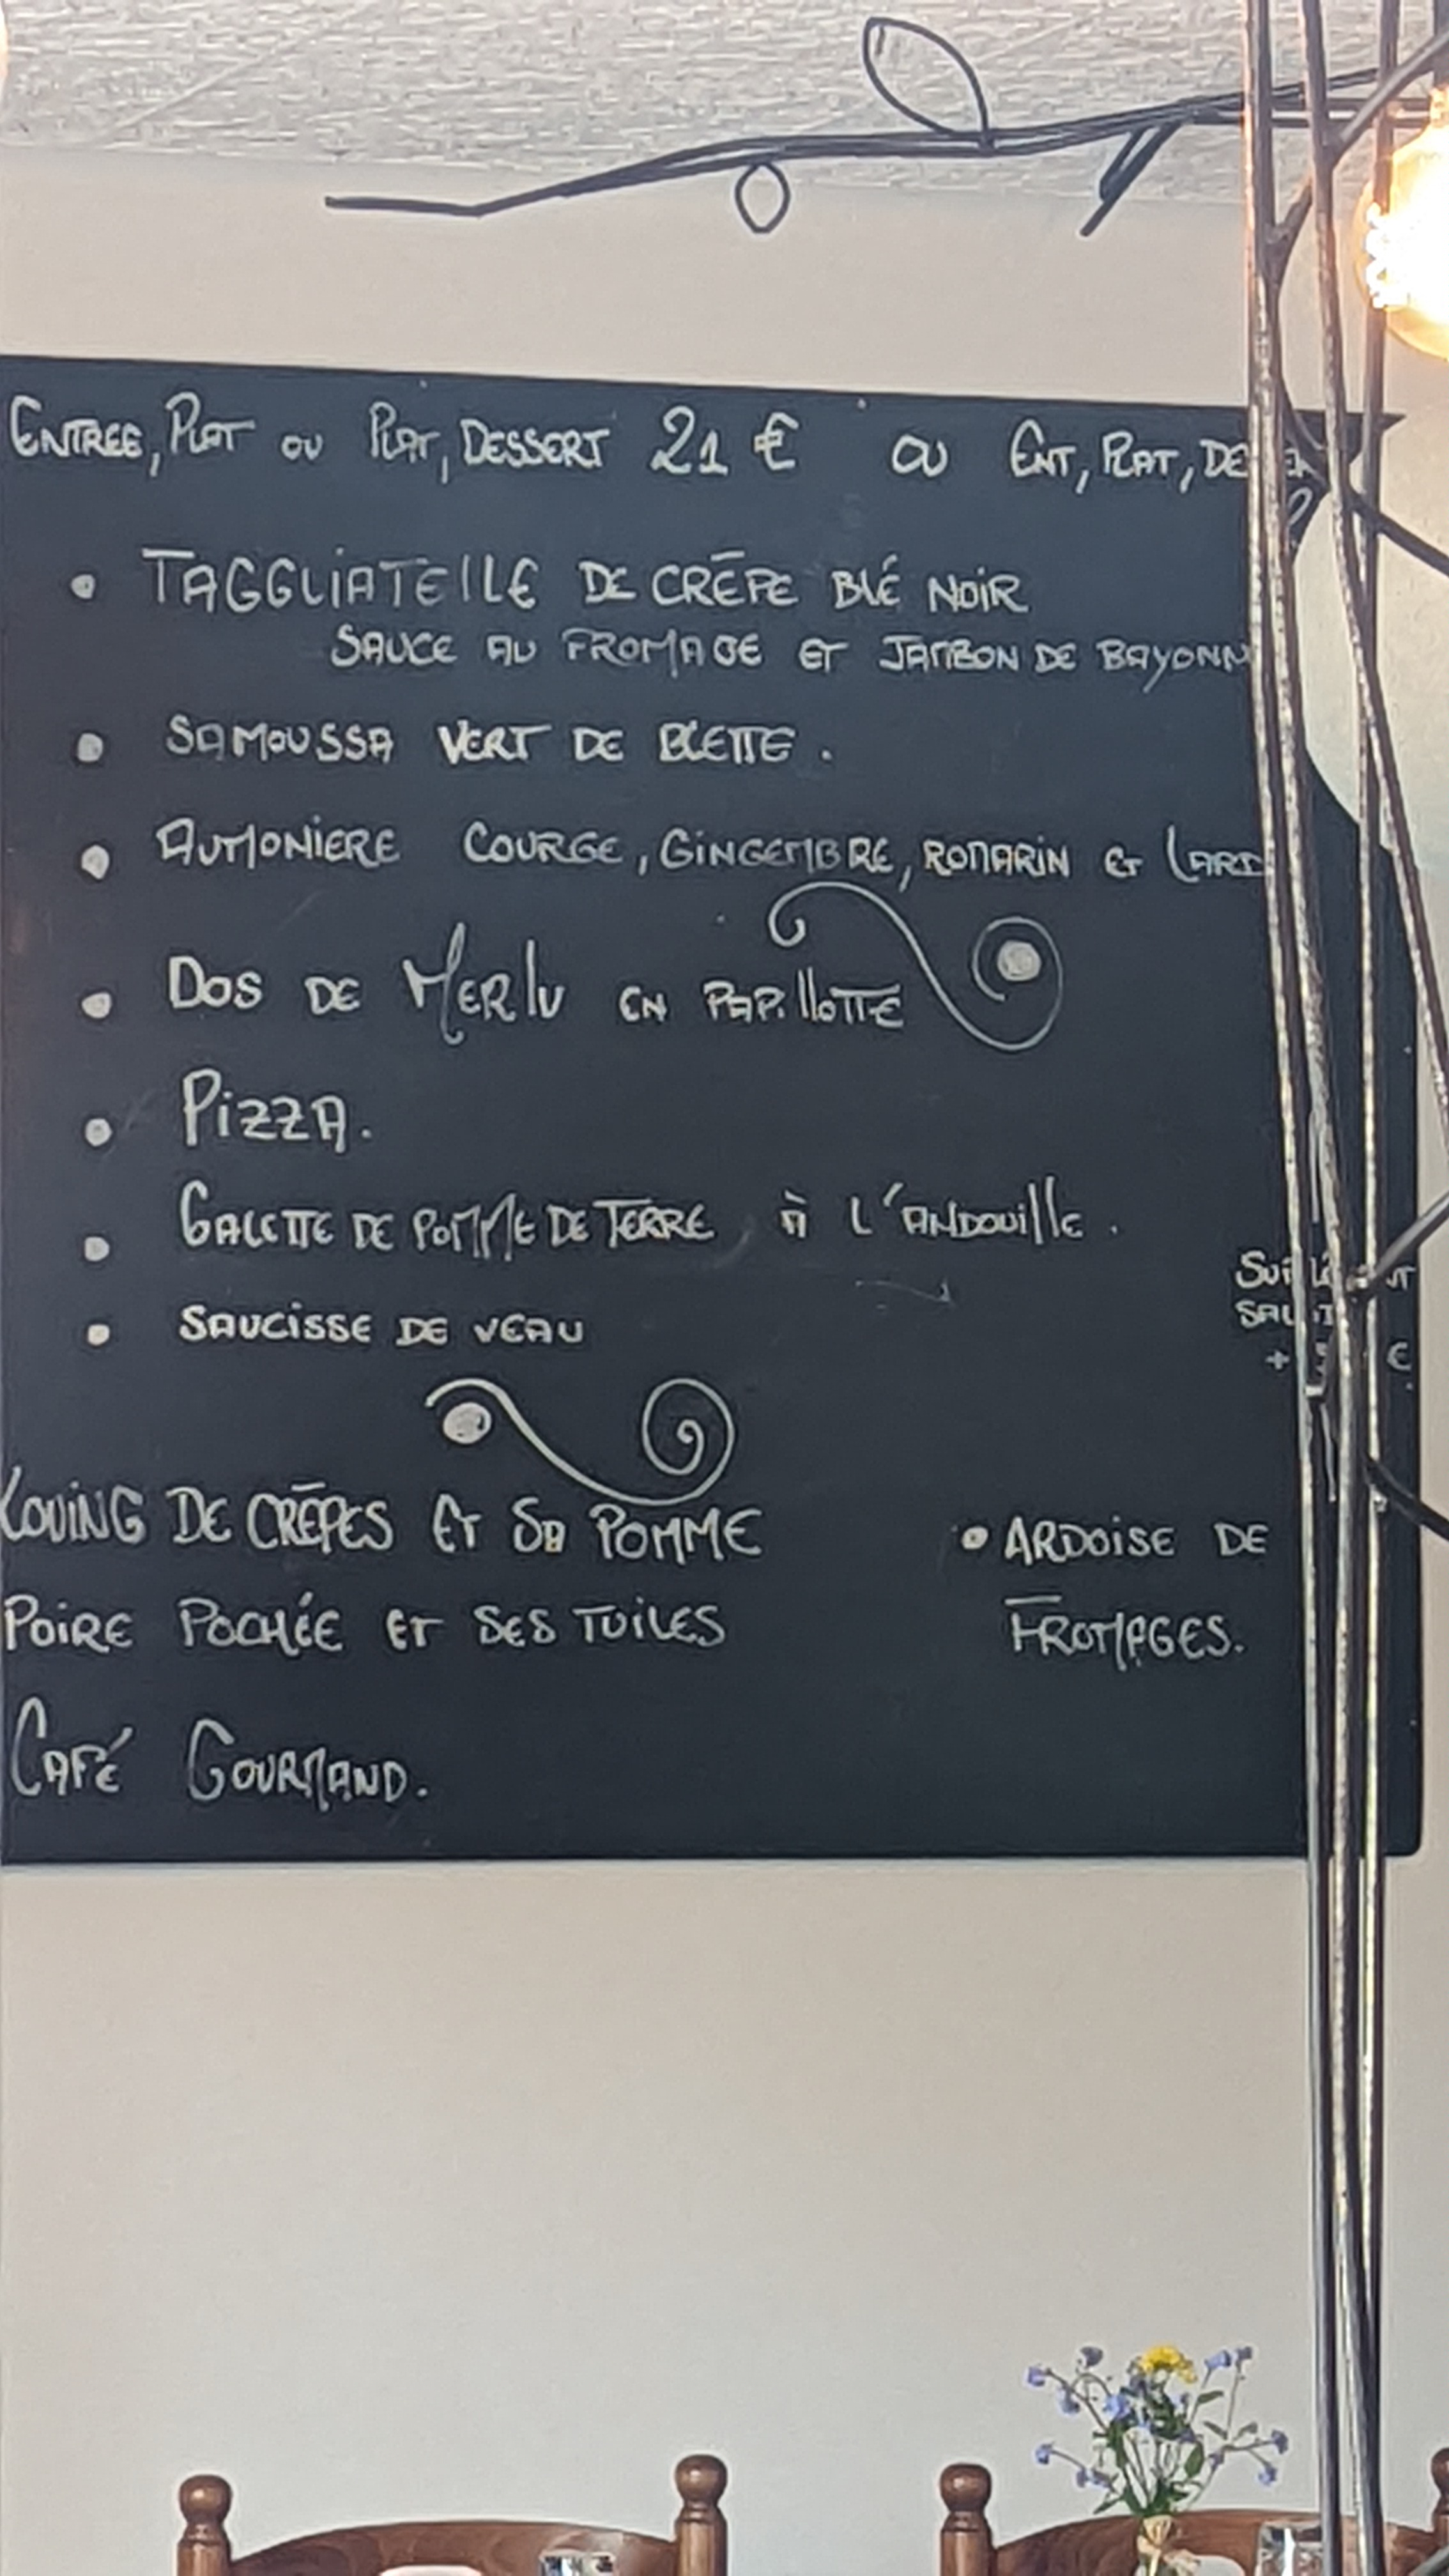 ENTREE, PLAT OU PLAT, DESSERT 21 € OU ENT, PLAT,
• TAGGLIATELLE DE CRÊPE BLÉ NOIR
SAUCE AU FROMAGE ET JAMBON DE BAYONN
• SAMOUSSA VERT DE BLETTE.
• AUMONIERE COURGE, GINGEMBRE, ROMARIN ET LARD
• DOS DE MERLU EN PAPILLOTTE
• PIZZA.
• GALETTE DE POMME DE TERRE À L'ANDOUILLE.
• SAUCISSE DE VEAU
KOUING DE CRÊPES ET SA POMME
POIRE POCHÉE ET SES TUILES
CAFÉ GOURMAND.
• ARDOISE DE
FROMAGES.